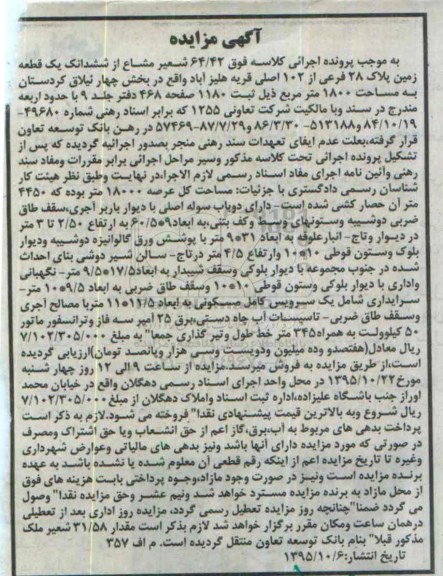 آگهی مزایده
به موجب پرونده اجرائی کلاسه فوق ۶۴/۴۲ شعیر مشاع از ششدانگ یک قطعه
زمین پلاک ۲۸ فرعی از ۱۰۲ اصلی قریه هلیز آباد واقع در بخش چهار ئیلاق کردستان
به مساحت ۱۸۰۰ متر مربع ذیل ثبت ۱۱۸۰ صفحه ۴۶۸ دفتر جلد ۹ با حدود اربعه
مندرج در سند وبا مالکیت شرکت تعاونی ۱۲۵۵ که برابر اسناد رهنی شماره ۴۹۶۸۰-
۸۴/۱۰/۱۹ و۵۱۳۱۸۸-۸۶/۳/۳۰ و۵۷۴۶۹-۸۷/۷/۲۹ در رهن بانک توسعه تعاون
قرار گرفته،بعلت عدم ایفای تعهدات سند رهنی منجر بصدور اجرائیه گردیده که پس از
تشکیل پرونده اجرائی تحت کلاسه مذکور وسیر مراحل اجرائی برابر مقررات ومفاد سند
رهنی وآئین نامه اجرای مفاد اسناد رسمی لازم الاجرا،در نهایت وطبق نظر هیئت کار
شناسان رسمی دادگستری با جزئیات: مساحت کل عرصه ۱۸۰۰۰ متر بوده که ۴۴۵۰
متر آن حصار کشی شده است- دارای دوباب سوله اصلی با دیوار باربر آجری،سقف طاق
ضربی دوشیبه وستونهای وسط وکف بتنی،به ابعاد۹*۶۰/۵ به ارتفاع ۲/۵۰ تا ۳ متر
در دیوار وتاج- انبارعلوفه به ابعاد ۳۱*۹ متر با پوشش ورق گالوانیزه دوشیبه ودیوار
بلوک وستون قوطی ۱۰*۱۰ وارتفاع ۴/۵ متر درتاج- سالن شیر دوشی بنای احداث
شده در جنوب مجموعه با دیوار بلوکی وسقف شیبدار به ابعاد۱۷/۵*۹/۵ متر- نگهبانی
واداری با دیوار بلوکی وستون قوطی ۱۰*۱۰ وسقف طاق ضربی به ابعاد ۹/۵*۱۰ متر-
سرایداری شامل یک سرویس کامل مسکونی به ابعاد ۱۱/۵*۱۱ متربا مصالح آجری
وسقف طاق ضربی- تاسیسات آب چاه دستی،برق ۲۵ آمپر سه فاز وترانسفور ماتور
۵۰ کیلوولت به همراه۳۴۵ متر خط طول وتیر گذاری جمعا" به مبلغ ۷/۱۰۲/۳۰۵/۰۰۰
ریال معادل(هفتصدو ده میلیون ودویست وسی هزار وپانصد تومان)ارزیابی گردیده
است،از طریق مزایده به فروش میرسد.مزایده از ساعت ۹ الی ۱۲ روز چهار شنبه
مورخ ۱۳۹۵/۱۰/۲۲ در محل واحد اجرای اسناد رسمی دهگلان واقع در خیابان محمد
اوراز جنب باشگاه علیزاده،اداره ثبت اسناد واملاک دهگلان از مبلغ ۷/۱۰۲/۳۰۵/۰۰۰
ریال شروع وبه بالاترین قیمت پیشنهادی نقدا" فروخته می شود.لازم به ذکر است
پرداخت بدهی های مربوط به آب،برق،گاز اعم از حق انشعاب ویا حق اشتراک ومصرف
در صورتی که مورد مزایده دارای آنها باشد ونیز بدهی های مالیاتی وعوارض شهرداری
وغیره تا تاریخ مزایده اعم از اینکه رقم قطعی آن معلوم شده یا نشده باشد به عهده
برنده مزایده است ونیز در صورت وجود مازاد،وجوه پرداختی بابت هزینه های فوق
از محل مازاد به برنده مزایده مسترد خواهد شد ونیم عشر وحق مزایده نقدا" وصول
می گردد ضمنا"چنانچه روز مزایده تعطیل رسمی گردد، مزایده روز اداری بعد از تعطیلی
درهمان ساعت ومکان مقرر برگزار خواهد شد لازم بذکر است مقدار ۳۱/۵۸ شعیر ملک
مذکور قبلا" بنام بانک توسعه تعاون منتقل گردیده است. م الف ۳۵۷
تاریخ انتشار:۱۳۹۵/۱۰/۶